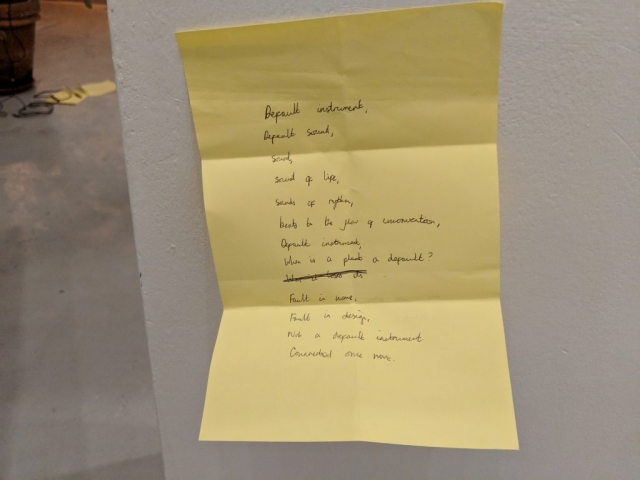 Default instrument,
Default sound,
sound,
sound of life,
sounds of rythm,
beats to the flow of
Default instrument,
When is a plant a default?
Fault is none,
Fault is design,
Not a default instrument
Connected once more.